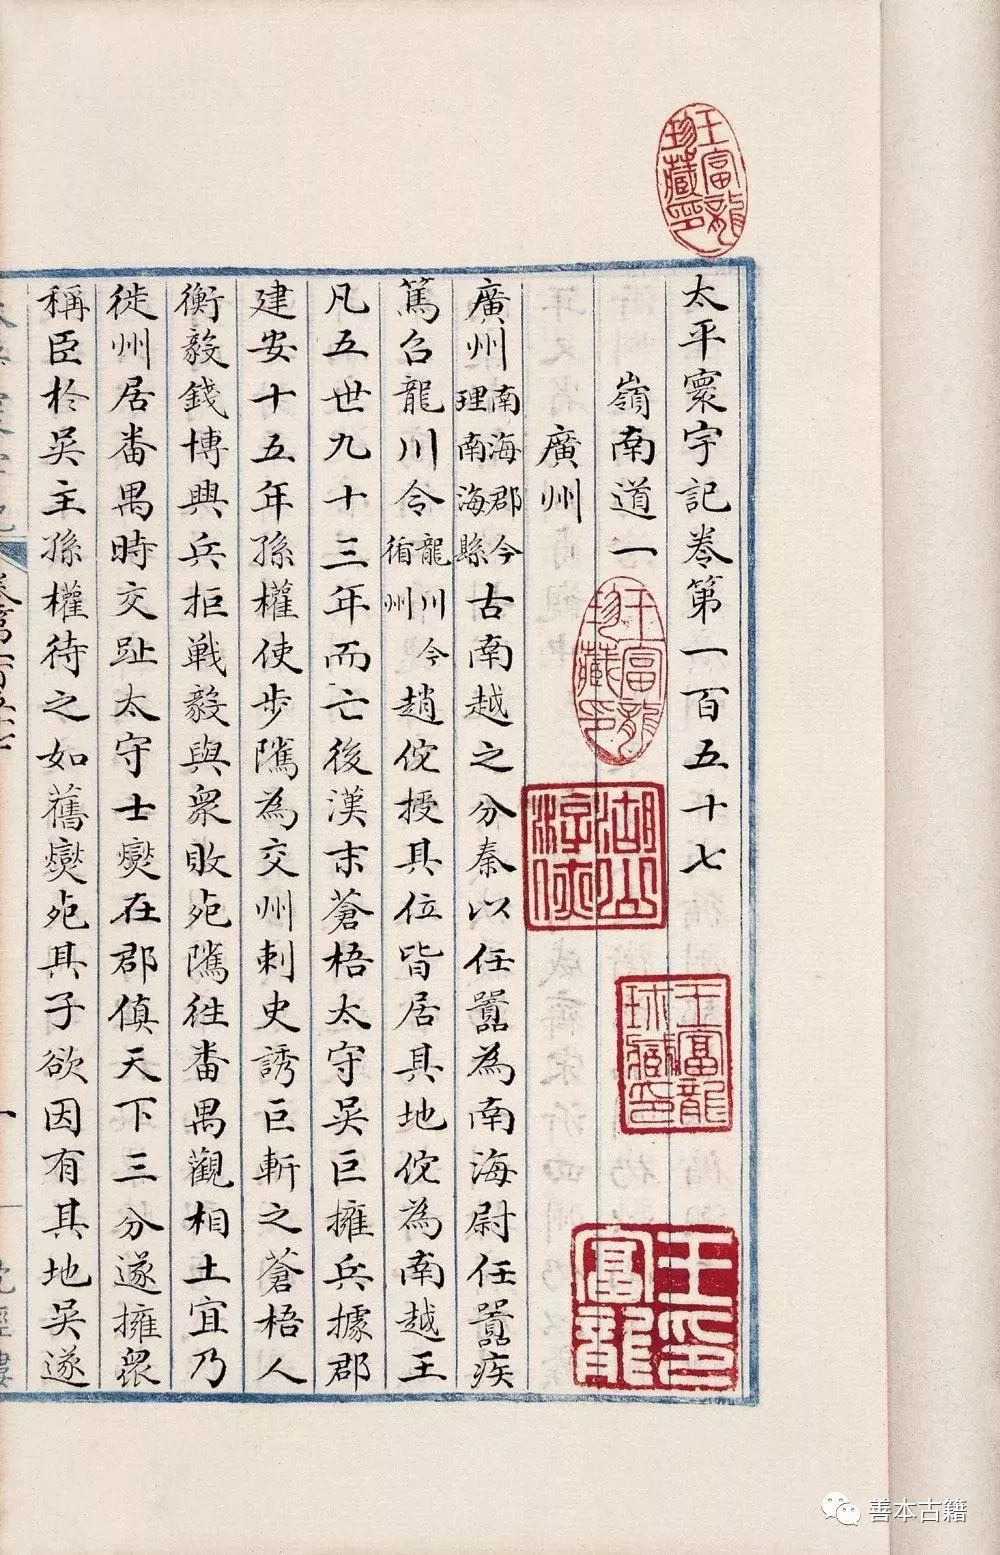 太平寰宇記卷第一百五十七
嶺南道一
廣州
廣州南海郡今理南海縣古南越之分秦以任囂為南海尉任囂疾
篤召龍川令龍川今循州趙佗授其位皆居其地佗為南越王
凡五世九十三年而亡後漢末蒼梧太守吳巨擁兵據郡
建安十五年孫權使步隲為交州刺史誘巨斬之蒼梧人
衡毅錢博興兵拒戰毅與衆敗死隲往番禺觀相土宜乃
徙州居番禺時交趾太守士燮在郡偵天下三分遂擁衆
稱臣於吳主孫權待之如舊燮死其子欲因有其地吳遂
王富龍珍藏印
王富龍珍藏印
王富龍珍藏印
王富龍印
善本古籍